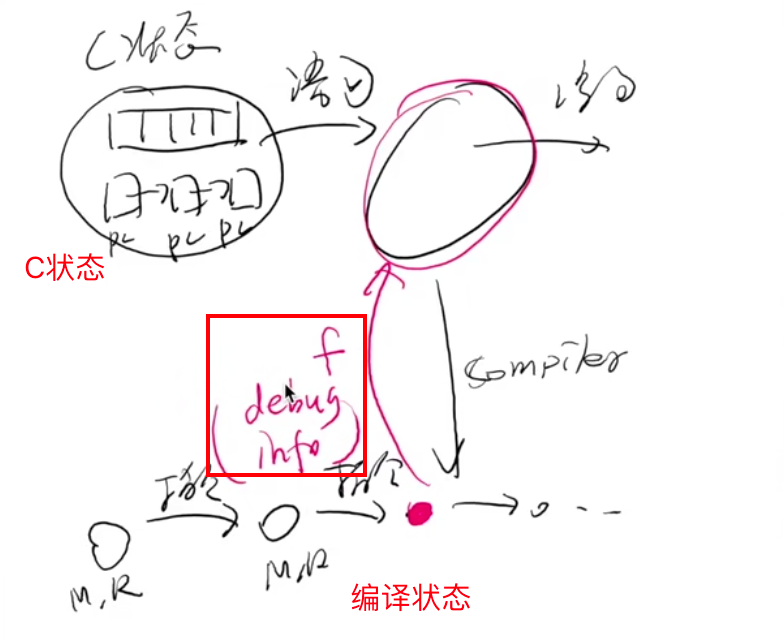 C状态
语句
语句
pc pc pc
C状态
f
debug
info
compiler
指令 指令
M,R
M,R
编译状态